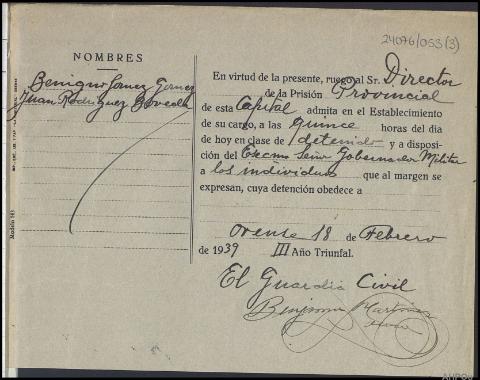 24076/053(3)
NOMBRES
Benigno Gomez Gomez
Juan Rodriguez Boveda
En virtud de la presente, ruego al Sr. Director
de la Prisión Provincial
de esta Capital admita en el Establecimiento
de su cargo, a las quince horas del día
de hoy en clase de detenido y a disposi-
ción del Excmo Señor Gobernador Militar
a los individuos que al margen se
expresan, cuya detención obedece a
Orense 18 de Febrero
de 1939 III Año Triunfal.
El Guardia Civil
Benjamin Martinez
Modelo 141